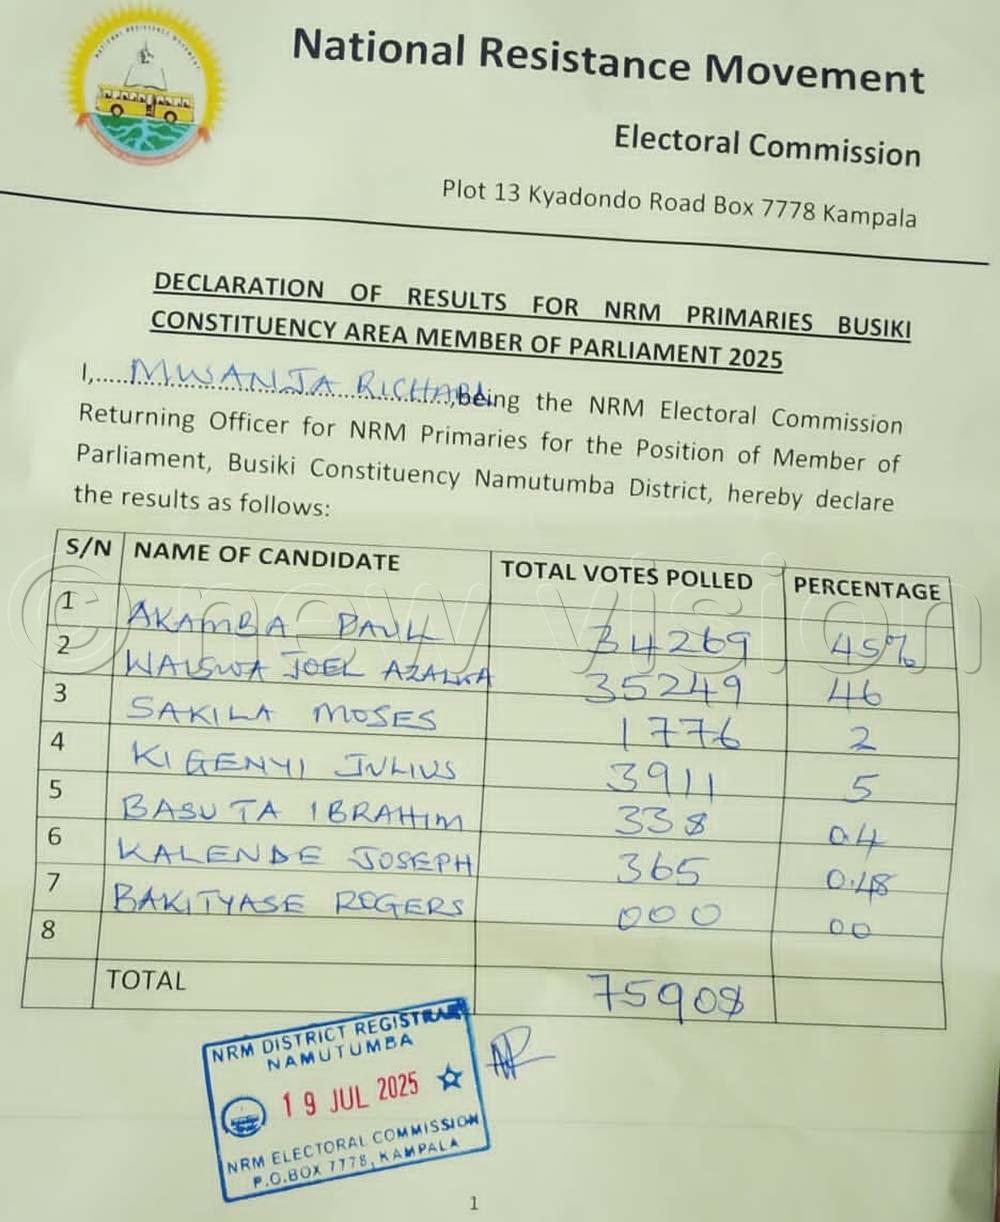 NATIONAL RESISTANCE MOVEMENT
National Resistance Movement
Electoral Commission
Plot 13 Kyadondo Road Box 7778 Kampala
DECLARATION OF RESULTS FOR NRM PRIMARIES BUSIKI
CONSTITUENCY AREA MEMBER OF PARLIAMENT 2025
I,.....MWANJA RICHARD,being the NRM Electoral Commission
Returning Officer for NRM Primaries for the Position of Member of
Parliament, Busiki Constituency Namutumba District, hereby declare
the results as follows:
S/N NAME OF CANDIDATE TOTAL VOTES POLLED PERCENTAGE
1 AKAMBA PAUL 34269 45%
2 WAISWA JOEL AZALWA 35249 46
3 SAKILA MOSES 1776 2
4 KIGENYI JULIUS 3911 5
5 BASUTA IBRAHIM 338 0.4
6 KALENDE JOSEPH 365 0.48
7 BAKITYASE ROGERS 000 00
8
TOTAL 75908
© new vision
NRM DISTRICT REGISTRAR
NAMUTUMBA
19 JUL 2025
NRM ELECTORAL COMMISSION
P.O.BOX 7778, KAMPALA
1